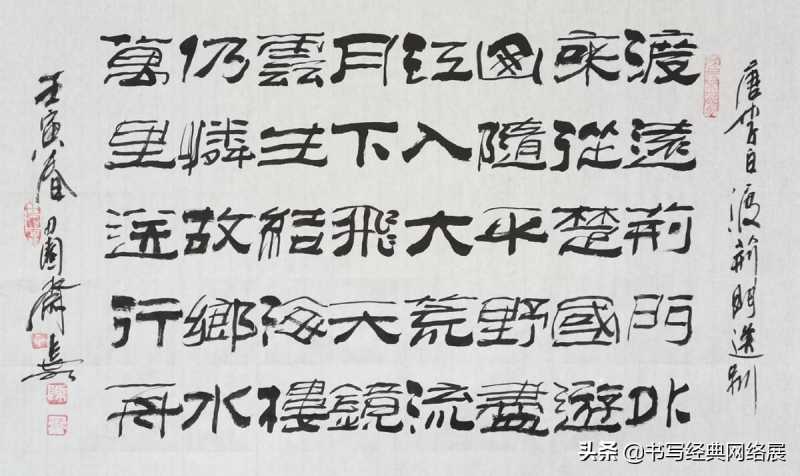 唐李白渡荊門送別
渡遠荊門外
來從楚國遊
山隨平野盡
江入大荒流
月下飛天鏡
雲生結海樓
仍憐故鄉水
萬里送行舟
壬寅春
头条 @书写经典网络展